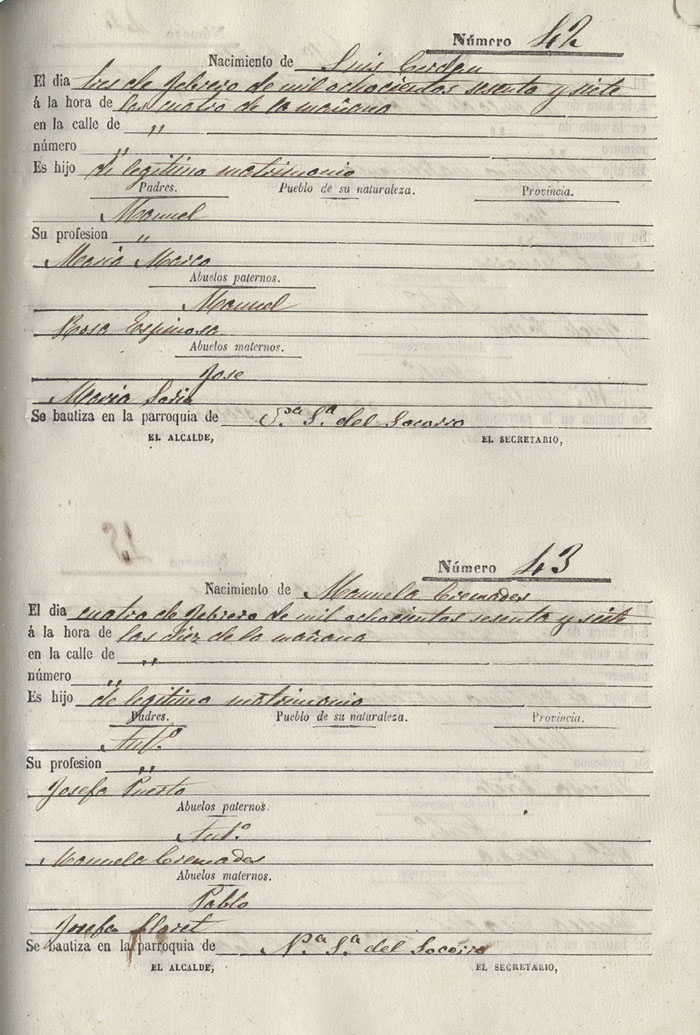 Número 42
Nacimiento de Luis Cerdan
El dia tres de febrero de mil ochocientos sesenta y siete
á la hora de las cuatro de la mañana
en la calle de „
número „
Es hijo de legitimo matrimonio
Padres. Pueblo de su naturaleza. Provincia.
Manuel
Su profesion „
Maria Marco
Abuelos paternos.
Manuel
Rosa Espinosa
Abuelos maternos.
Jose
Maria Soria
Se bautiza en la parroquia de Nª. Sª del Socorro
EL ALCALDE, EL SECRETARIO,
Número 43
Nacimiento de Manuela Cremades
El dia cuatro de febrero de mil ochocientos sesenta y siete
á la hora de las diez de la mañana
en la calle de „
número „
Es hijo de legitimo matrimonio
Padres. Pueblo de su naturaleza. Provincia.
Antº.
Su profesion „
Josefa Puerto
Abuelos paternos.
Antº.
Manuela Cremades
Abuelos maternos.
Pablo
Josefa Llaret
Se bautiza en la parroquia de Nª. Sª del Socorro
EL ALCALDE, EL SECRETARIO,